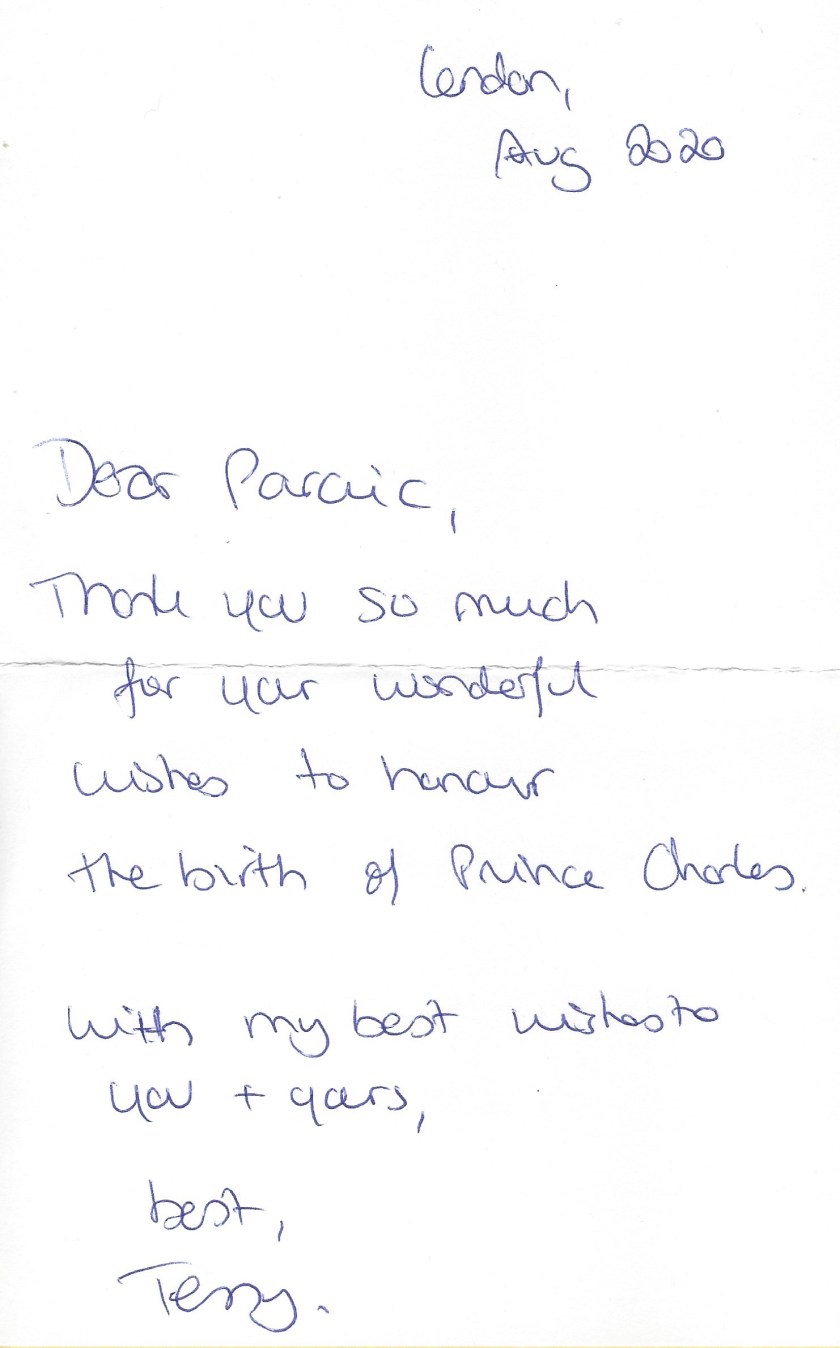 London,
Aug 2020
Dear Paraic,
Thank you so much
for your wonderful
wishes to honour
the birth of Prince Charles.
With my best wishes to
you + yours,
best,
Terry.